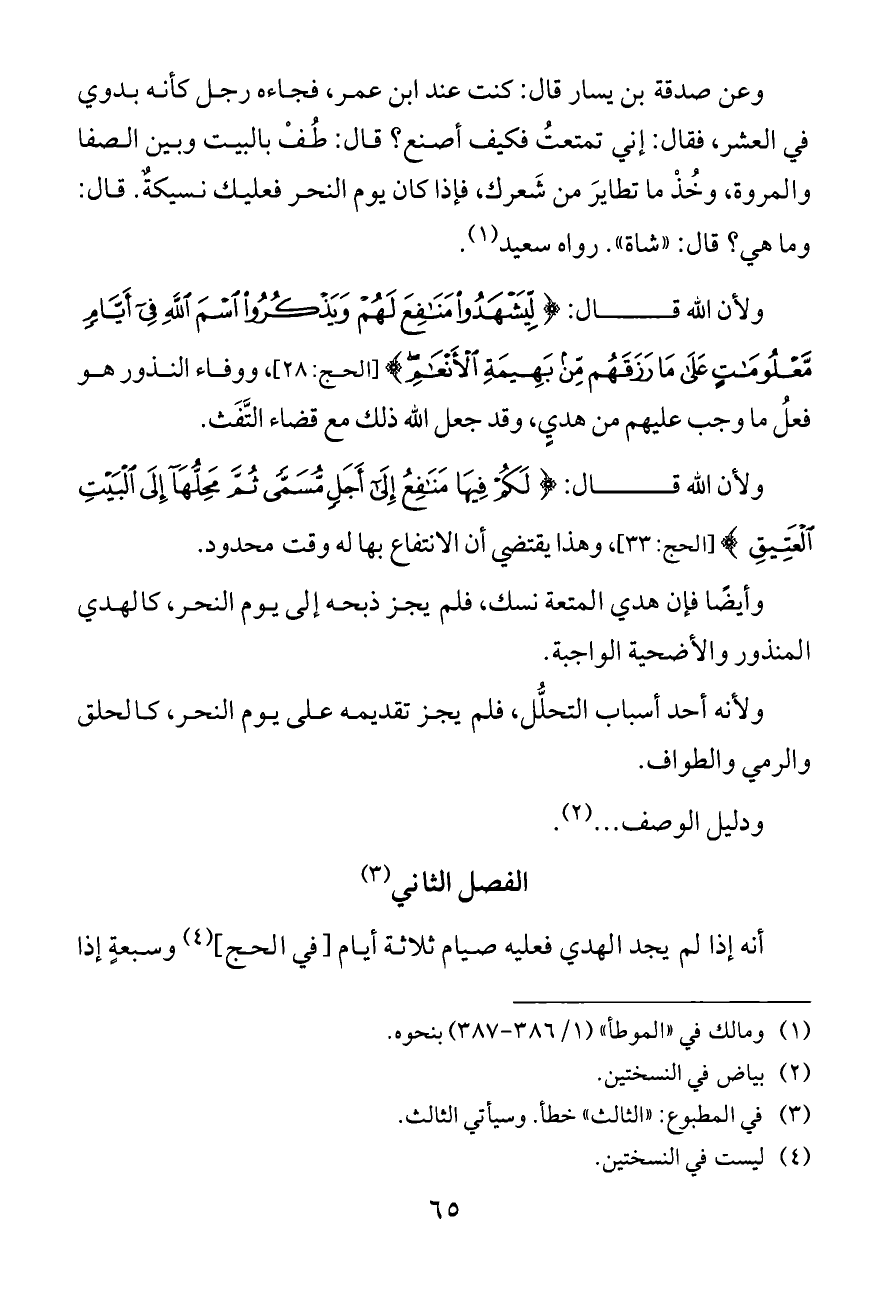 وعن صدقة بن يسار قال: كنت عند ابن عمر، فجاءه رجل كأنه بدوي
في العشر، فقال: إني تمتعتُ فكيف أصنع؟ قال: طُفْ بالبيت وبين الصفا
والمروة، وخُذْ ما تطايرَ من شَعرك، فإذا كان يوم النحر فعليك نسيكةٌ. قال:
وما هي؟ قال: «شاة». رواه سعيد(١).
ولأن الله قـــــــال: ﴿لِّيَشْهَدُواْ مَنَٰفِعَ لَهُمْ وَيَذْكُرُواْ ٱسْمَ ٱللَّهِ فِىٓ أَيَّامٖ
مَّعْلُومَٰتٍ عَلَىٰ مَا رَزَقَهُم مِّنۢ بَهِيمَةِ ٱلْأَنْعَٰمِۖ﴾ [الحج: ٢٨]، ووفاء النذور هو
فعلُ ما وجب عليهم من هديٍ، وقد جعل الله ذلك مع قضاء التَّفَث.
ولأن الله قـــــــال: ﴿لَكُمْ فِيهَا مَنَٰفِعُ إِلَىٰٓ أَجَلٖ مُّسَمّٗى ثُمَّ مَحِلُّهَآ إِلَى ٱلْبَيْتِ
ٱلْعَتِيقِ﴾ [الحج: ٣٣]، وهذا يقتضي أن الانتفاع بها له وقت محدود.
وأيضًا فإن هدي المتعة نسك، فلم يجز ذبحه إلى يوم النحر، كالهدي
المنذور والأضحية الواجبة.
ولأنه أحد أسباب التحلُّل، فلم يجز تقديمه على يوم النحر، كالحلق
والرمي والطواف.
ودليل الوصف...(٢).
الفصل الثاني(٣)
أنه إذا لم يجد الهدي فعليه صيام ثلاثة أيام [في الحج](٤) وسبعةٍ إذا
(١) ومالك في «الموطأ» (١/ ٣٨٦-٣٨٧) بنحوه.
(٢) بياض في النسختين.
(٣) في المطبوع: «الثالث» خطأ. وسيأتي الثالث.
(٤) ليست في النسختين.
٦٥